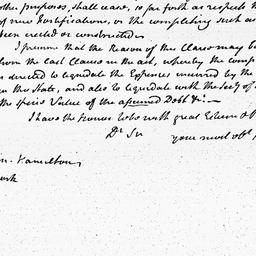 other purposes, shall cease, so far forth as respects the
of new Fortifications, or the compleating such as
been erected or constructed.
I presume that the Reason of this Clause may be
from the last Clause in the act, whereby the comp
is directed to liquidate the Expences incurred by the
the State, and also to liquidate with the Secty of
the Specie Value of the assumed Debt &c:—
I have the Honour to be with great Esteem
Dr Sir
your most obt
n. Hamilton,